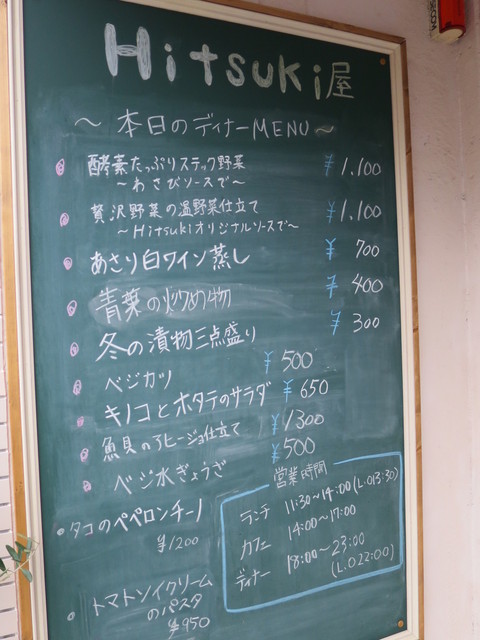 Hitsuki屋
～本日のディナーMENU～
酵素たっぷりスティック野菜 ¥1,100
～わさびソースで～
贅沢野菜の温野菜仕立て ¥1,100
～Hitsukiオリジナルソースで～
あさり白ワイン蒸し ¥700
青葉の炒め物 ¥400
冬の漬物三点盛り ¥300
ベジカツ ¥500
キノコとホタテのサラダ ¥650
魚貝のアヒージョ仕立て ¥1300
ベジ水ぎょうざ ¥500
タコのペペロンチーノ
¥1200
トマトソイクリーム
のパスタ
¥950
営業時間
ランチ 11:30～14:00(L.O13:30)
カフェ 14:00～17:00
ディナー 18:00～23:00
(L.O22:00)